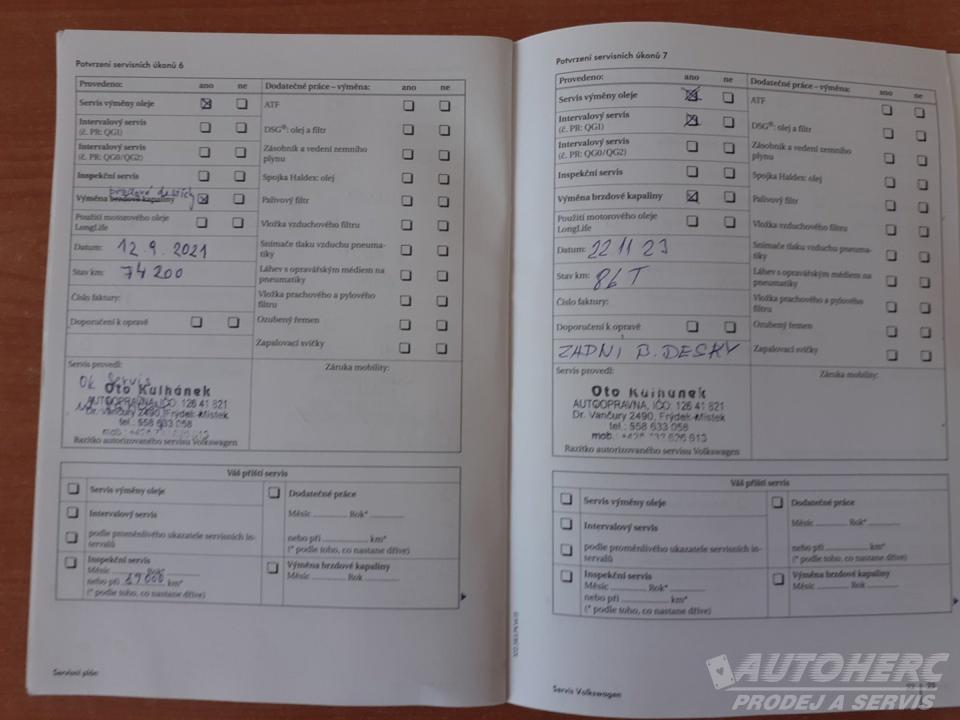 Potvrzení servisních úkonů 6
Provedeno: ano ne
Servis výměny oleje
Intervalový servis
(č. PR: QG1)
Intervalový servis
(č. PR: QG0/QG2)
Inspekční servis
Výměna brzdové kapaliny
Použití motorového oleje
LongLife
Datum: 12.9.2021
Stav km: 74 200
Číslo faktury:
Doporučení k opravě
Dodatečné práce – výměna: ano ne
ATF
DSG®: olej a filtr
Zásobník a vedení zemního
plynu
Spojka Haldex: olej
Palivový filtr
Vložka vzduchového filtru
Snímače tlaku vzduchu pneuma-
tiky
Láhev s opravářským médiem na
pneumatiky
Vložka prachového a pylového
filtru
Ozubený řemen
Zapalovací svíčky
Servis provedl:
Ok Servis
Oto Kulhánek
AUTOOPRAVNA, IČO: 126 41 821
Dr. Vančury 2490, Frýdek-Místek
tel.: 558 633 058
Razítko autorizovaného servisu Volkswagen
Záruka mobility:
Váš příští servis
Servis výměny oleje
Intervalový servis
podle proměnlivého ukazatele servisních in-
tervalů
Inspekční servis
Měsíc Rok*
nebo při 19000 km*
(* podle toho, co nastane dříve)
Dodatečné práce
Měsíc Rok*
nebo při km*
(* podle toho, co nastane dříve)
Výměna brzdové kapaliny
Měsíc Rok*
Servisní plán
Potvrzení servisních úkonů 7
Provedeno: ano ne
Servis výměny oleje
Intervalový servis
(č. PR: QG1)
Intervalový servis
(č. PR: QG0/QG2)
Inspekční servis
Výměna brzdové kapaliny
Použití motorového oleje
LongLife
Datum: 22 11 23
Stav km: 86 T
Číslo faktury:
Doporučení k opravě
ZADNI B. DESKY
Dodatečné práce – výměna: ano ne
ATF
DSG®: olej a filtr
Zásobník a vedení zemního
plynu
Spojka Haldex: olej
Palivový filtr
Vložka vzduchového filtru
Snímače tlaku vzduchu pneuma-
tiky
Láhev s opravářským médiem na
pneumatiky
Vložka prachového a pylového
filtru
Ozubený řemen
Zapalovací svíčky
Servis provedl:
Oto Kulhánek
AUTOOPRAVNA, IČO: 126 41 821
Dr. Vančury 2490, Frýdek-Místek
tel.: 558 633 058
Razítko autorizovaného servisu Volkswagen
Záruka mobility:
Váš příští servis
Servis výměny oleje
Intervalový servis
podle proměnlivého ukazatele servisních in-
tervalů
Inspekční servis
Měsíc Rok*
nebo při km*
(* podle toho, co nastane dříve)
Dodatečné práce
Měsíc Rok*
nebo při km*
(* podle toho, co nastane dříve)
Výměna brzdové kapaliny
Měsíc Rok*
Servis Volkswagen
AUTOHERC
PRODEJ A SERVIS